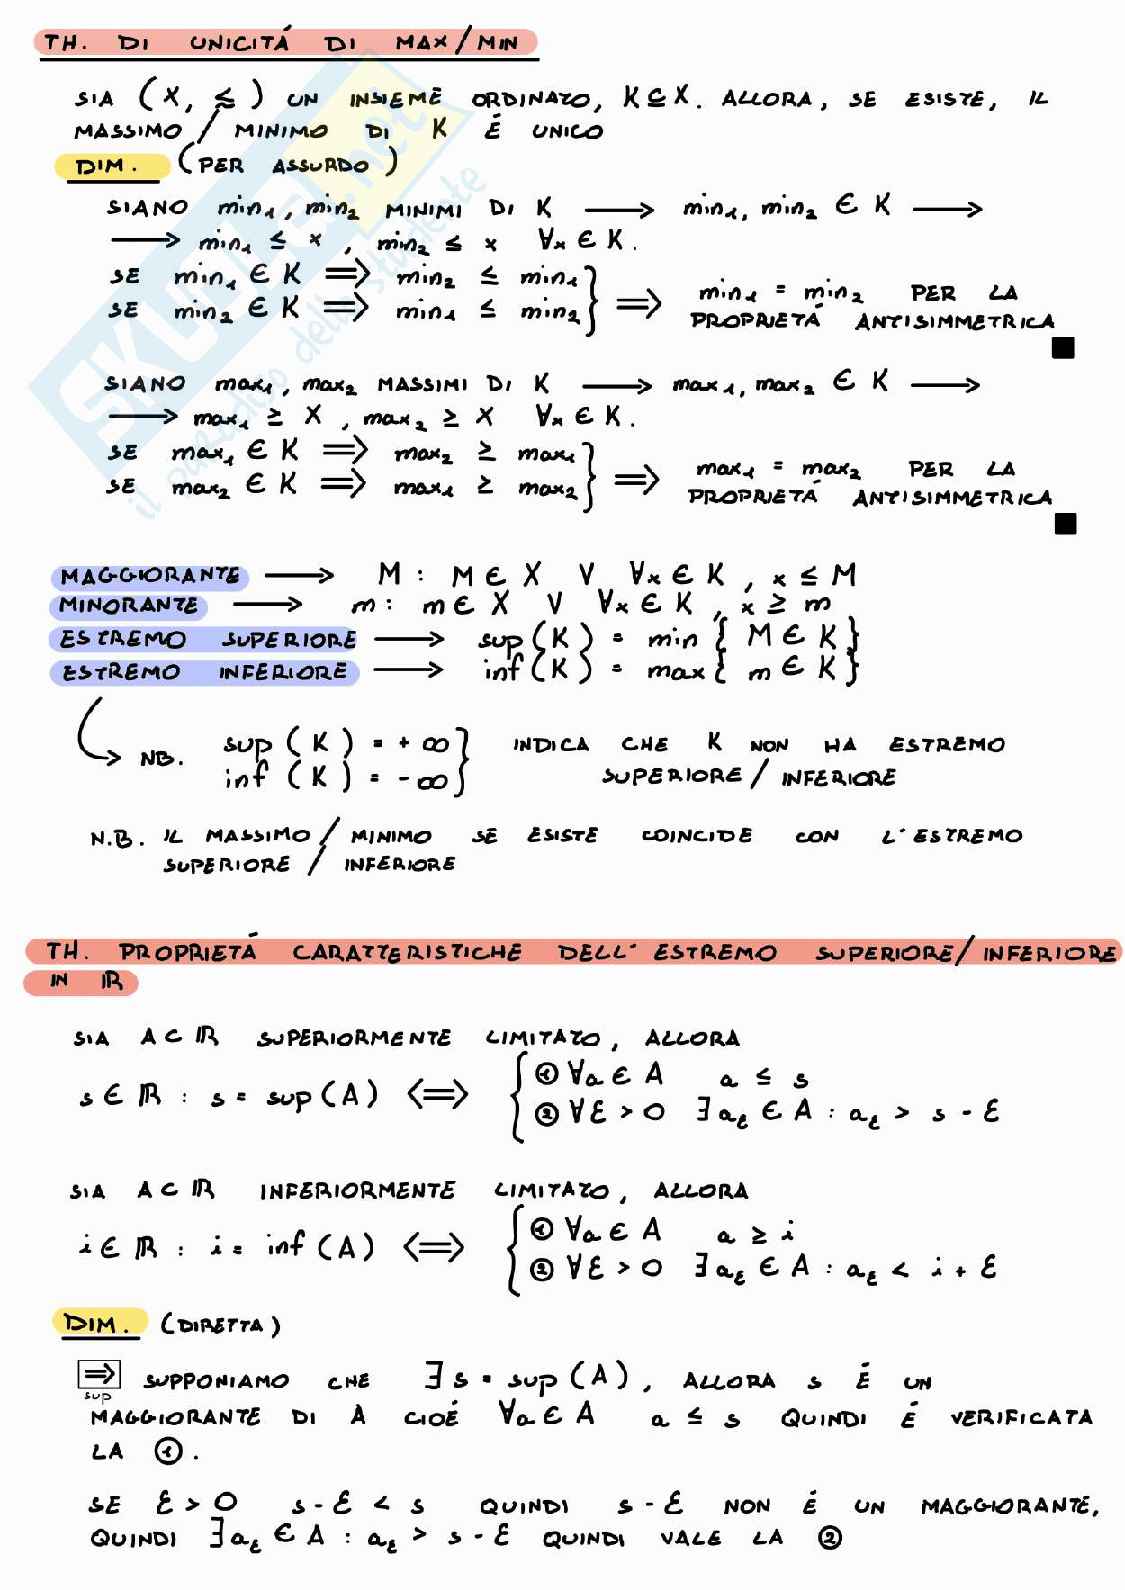 TH. DI UNICITÁ DI MAX/MIN
SIA (X, ≤) UN INSIEME ORDINATO, K⊆X. ALLORA, SE ESISTE, IL
MASSIMO / MINIMO DI K É UNICO
DIM. (PER ASSURDO)
SIANO min₁, min₂ MINIMI DI K ⟶ min₁, min₂ ∈ K ⟶
⟶ min₁ ≤ x , min₂ ≤ x ∀x ∈ K.
SE min₁ ∈ K ⟹ min₂ ≤ min₁
SE min₂ ∈ K ⟹ min₁ ≤ min₂ } ⟹ min₁ = min₂ PER LA
PROPRIETÁ ANTISIMMETRICA
■
SIANO max₁, max₂ MASSIMI DI K ⟶ max₁, max₂ ∈ K ⟶
⟶ max₁ ≥ X , max₂ ≥ X ∀x ∈ K.
SE max₁ ∈ K ⟹ max₂ ≥ max₁
SE max₂ ∈ K ⟹ max₁ ≥ max₂ } ⟹ max₁ = max₂ PER LA
PROPRIETÁ ANTISIMMETRICA
■
MAGGIORANTE ⟶ M : M ∈ X V ∀x ∈ K , x ≤ M
MINORANTE ⟶ m : m ∈ X V ∀x ∈ K , x ≥ m
ESTREMO SUPERIORE ⟶ sup (K) = min { M ∈ K }
ESTREMO INFERIORE ⟶ inf (K) = max { m ∈ K }
NB. sup (K) = + ∞
inf (K) = - ∞ } INDICA CHE K NON HA ESTREMO
SUPERIORE / INFERIORE
N.B. IL MASSIMO / MINIMO SE ESISTE COINCIDE CON L'ESTREMO
SUPERIORE / INFERIORE
TH. PROPRIETÁ CARATTERISTICHE DELL'ESTREMO SUPERIORE/INFERIORE
IN ℝ
SIA A ⊂ ℝ SUPERIORMENTE LIMITATO, ALLORA
s ∈ ℝ : s = sup (A) ⟺ { ① ∀a ∈ A a ≤ s
② ∀ε > 0 ∃ aε ∈ A : aε > s - ε
SIA A ⊂ ℝ INFERIORMENTE LIMITATO, ALLORA
i ∈ ℝ : i = inf (A) ⟺ { ① ∀a ∈ A a ≥ i
② ∀ε > 0 ∃ aε ∈ A : aε < i + ε
DIM. (DIRETTA)
⟹ SUPPONIAMO CHE ∃ s = sup (A), ALLORA s É UN
sup
MAGGIORANTE DI A CIOÉ ∀a ∈ A a ≤ s QUINDI É VERIFICATA
LA ①.
SE ε > 0 s - ε < s QUINDI s - ε NON É UN MAGGIORANTE,
QUINDI ∃ aε ∈ A : aε > s - ε QUINDI VALE LA ②
SKUOLA.net
il paradiso dello studente